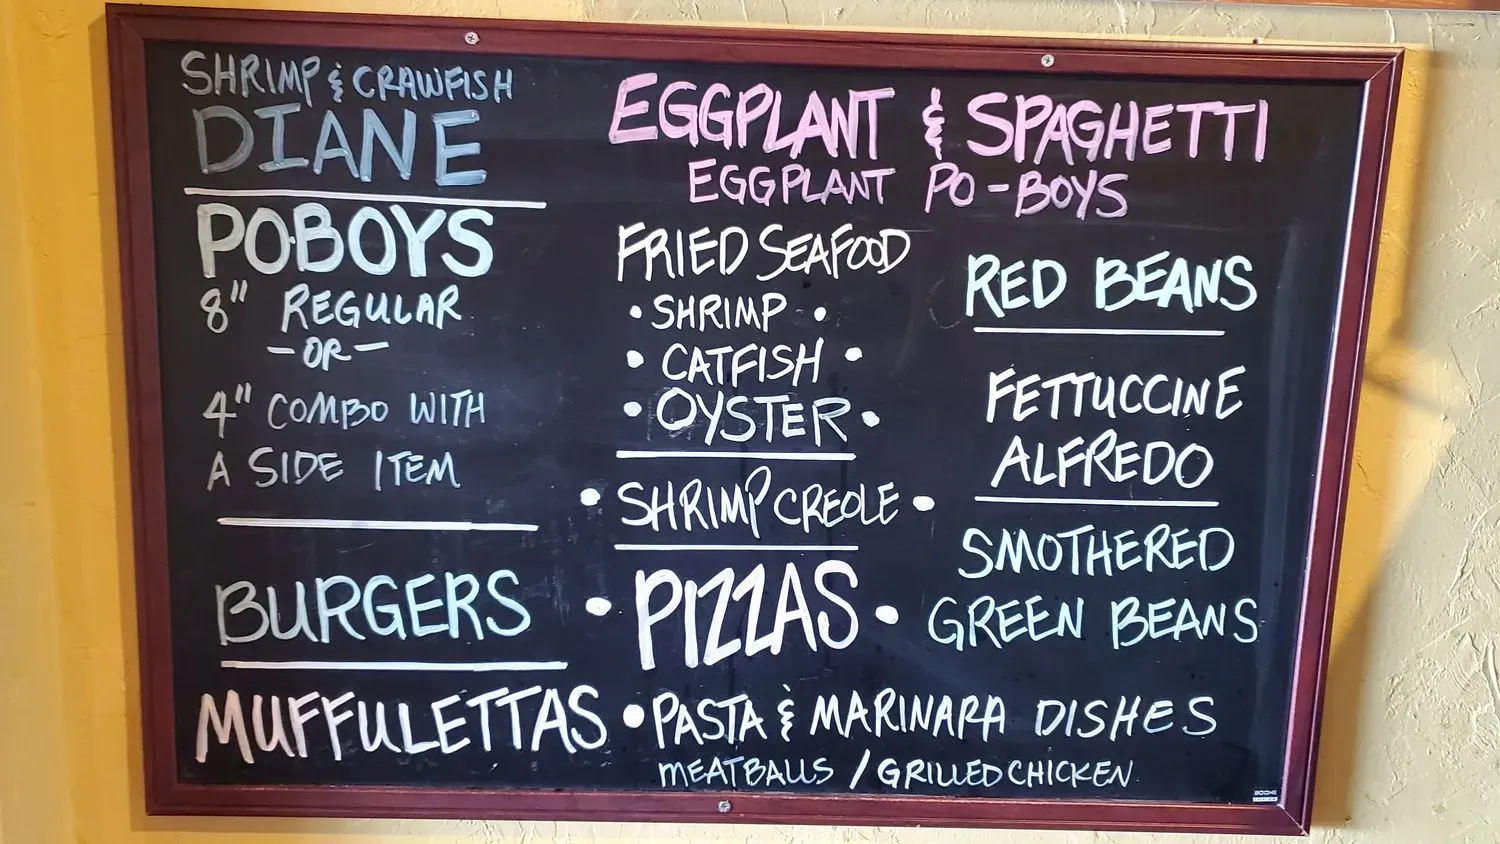 SHRIMP & CRAWFISH
DIANE
POBOYS
8" REGULAR
-OR-
4" COMBO WITH
A SIDE ITEM
BURGERS
MUFFULETTAS
EGGPLANT & SPAGHETTI
EGGPLANT PO-BOYS
FRIED SEAFOOD
• SHRIMP •
• CATFISH •
• OYSTER •
• SHRIMP CREOLE •
• PIZZAS •
• PASTA & MARINARA DISHES
MEATBALLS / GRILLED CHICKEN
RED BEANS
FETTUCCINE
ALFREDO
SMOTHERED
GREEN BEANS
BOONE